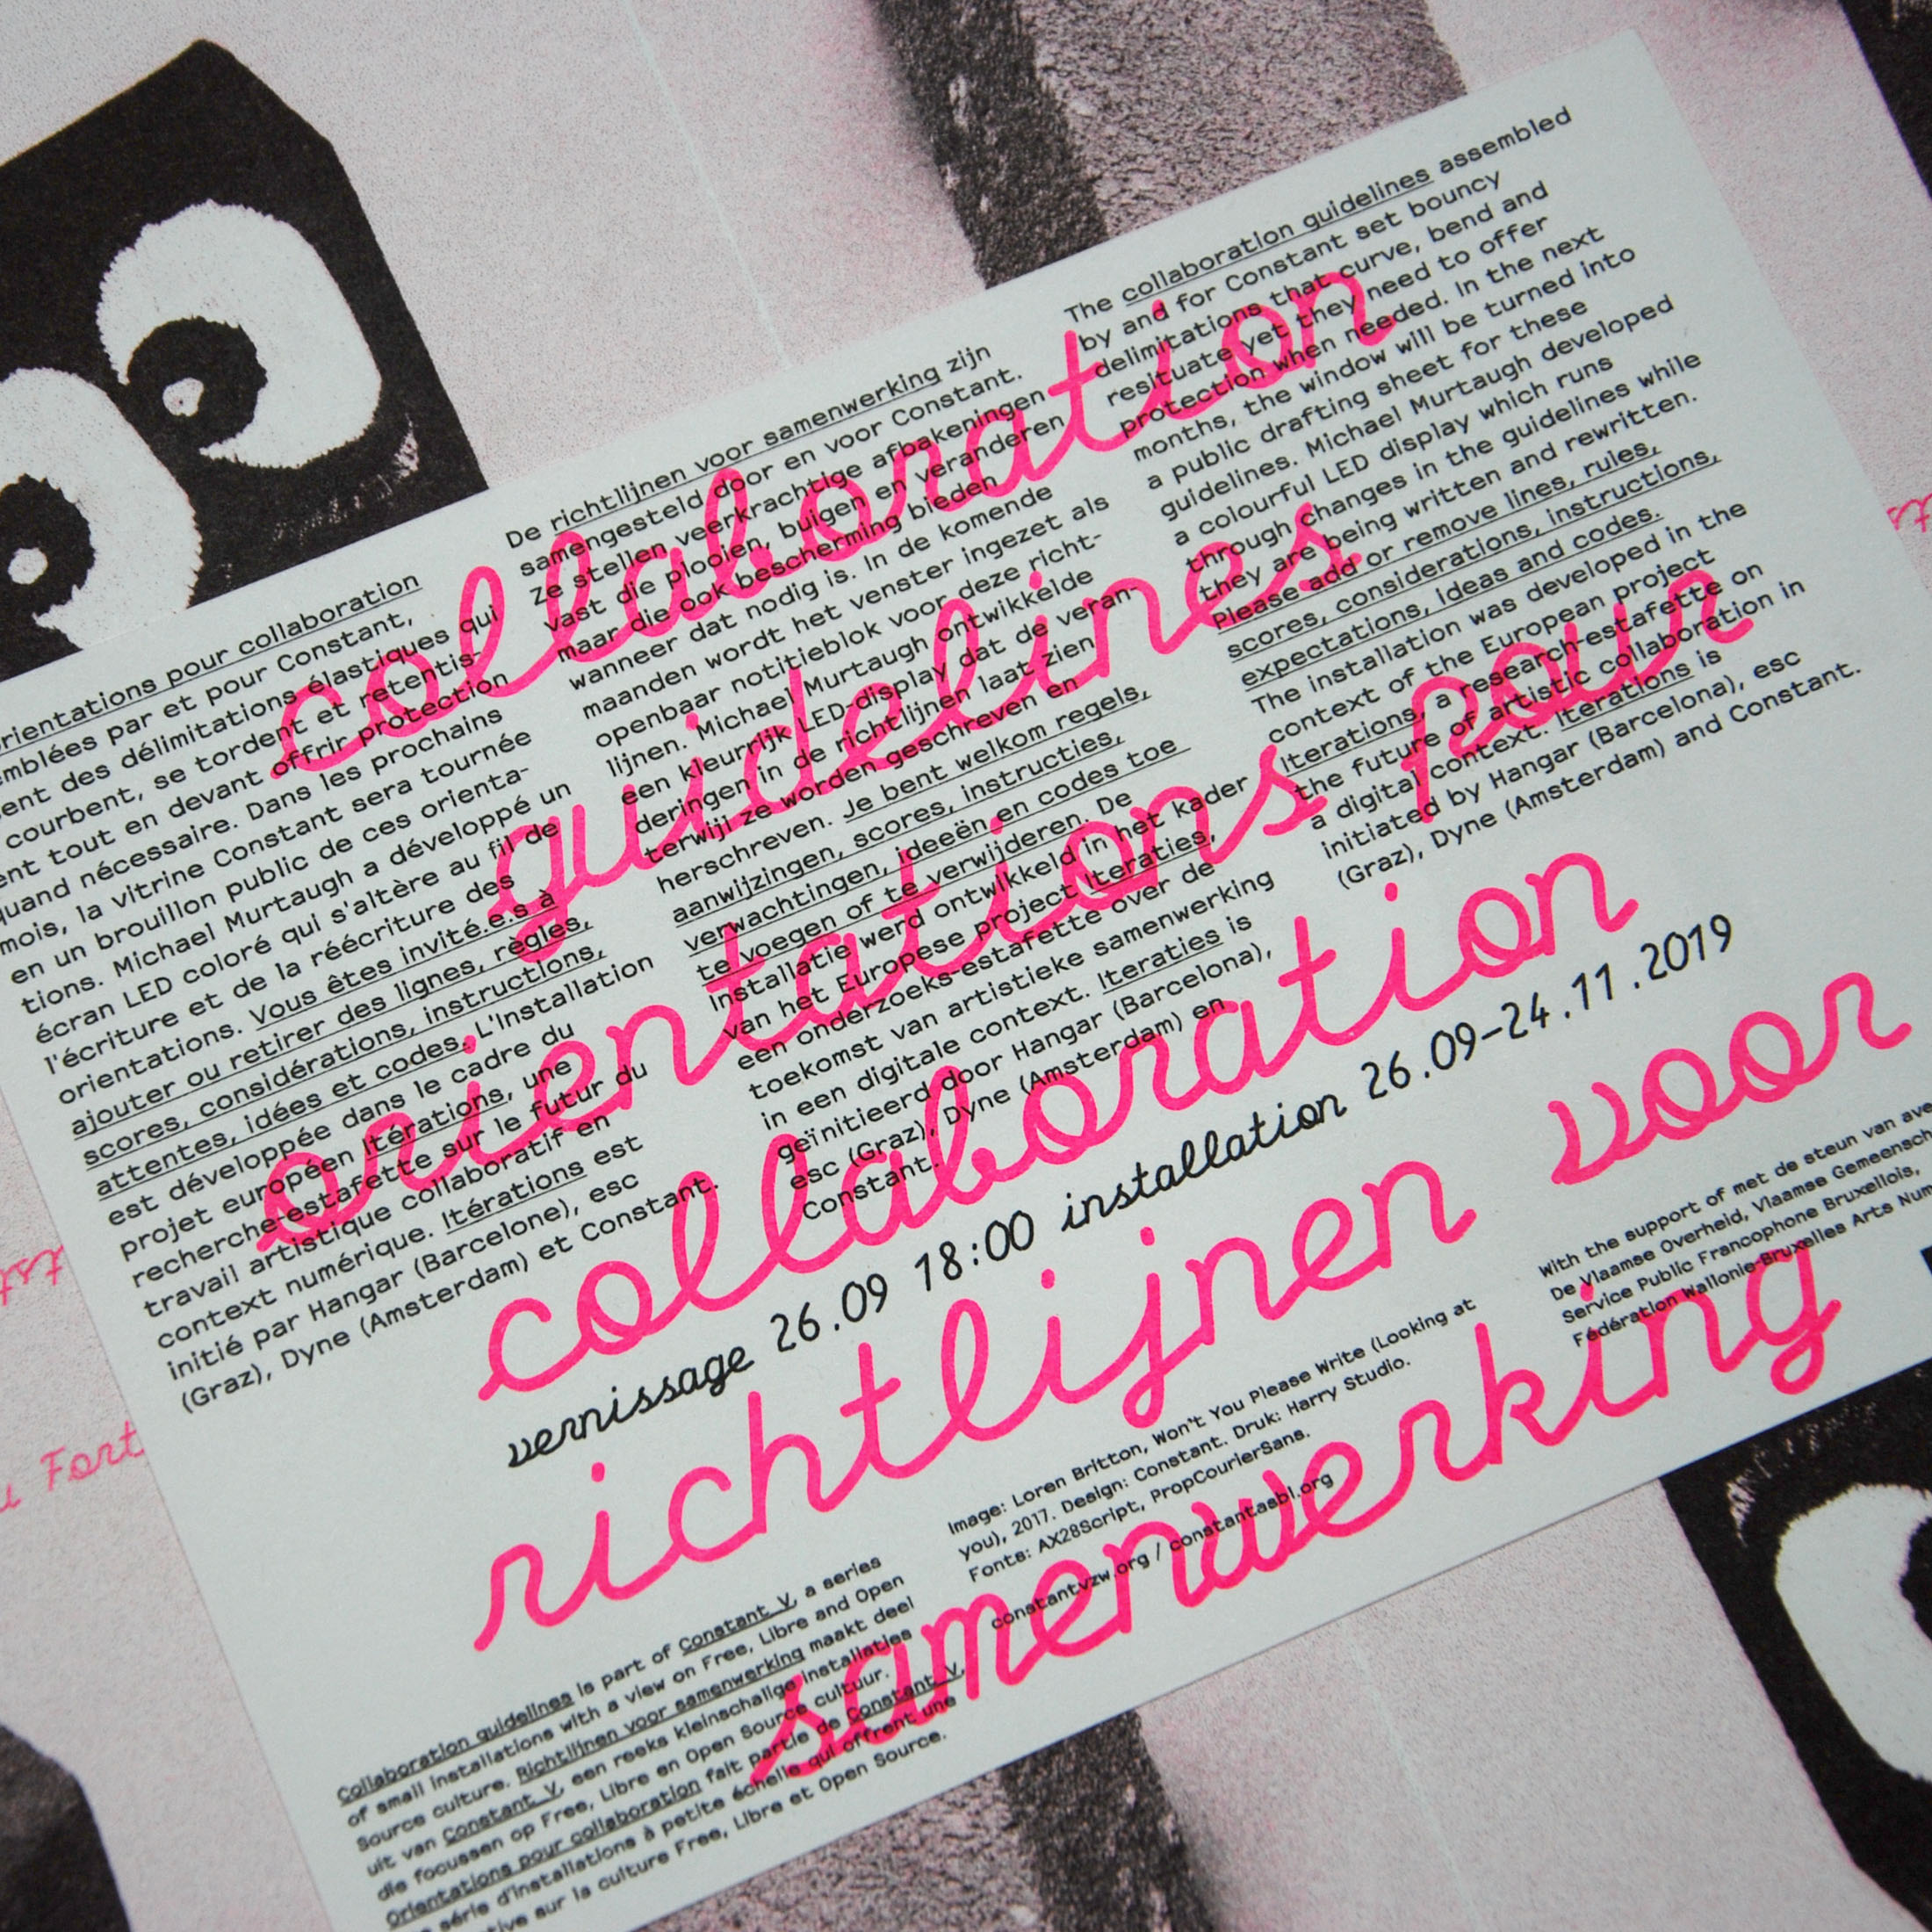 rientations pour collaboration
emblées par et pour Constant,
ent des délimitations élastiques qui
courbent, se tordent et retentis-
ent tout en devant offrir protection
quand nécessaire. Dans les prochains
mois, la vitrine Constant sera tournée
en un brouillon public de ces orienta-
tions. Michael Murtaugh a développé un
écran LED coloré qui s'altère au fil de
l'écriture et de la réécriture des
orientations. Vous êtes invité.e.s à
ajouter ou retirer des lignes, règles,
scores, considérations, instructions,
attentes, idées et codes. L'installation
est développée dans le cadre du
projet européen Itérations, une
recherche-estafette sur le futur du
travail artistique collaboratif en
context numérique. Itérations est
initié par Hangar (Barcelone), esc
(Graz), Dyne (Amsterdam) et Constant.
De richtlijnen voor samenwerking zijn
samengesteld door en voor Constant.
Ze stellen veerkrachtige afbakeningen
vast die plooien, buigen en veranderen
maar die ook bescherming bieden
wanneer dat nodig is. In de komende
maanden wordt het venster ingezet als
openbaar notitieblok voor deze richt-
lijnen. Michael Murtaugh ontwikkelde
een kleurrijk LED-display dat de veran-
deringen in de richtlijnen laat zien
terwijl ze worden geschreven en
herschreven. Je bent welkom regels,
aanwijzingen, scores, instructies,
verwachtingen, ideeën en codes toe
te voegen of te verwijderen. De
installatie werd ontwikkeld in het kader
van het Europese project Iteraties,
een onderzoeks-estafette over de
toekomst van artistieke samenwerking
in een digitale context. Iteraties is
geïnitieerd door Hangar (Barcelona),
esc (Graz), Dyne (Amsterdam) en
Constant.
The collaboration guidelines assembled
by and for Constant set bouncy
delimitations that curve, bend and
resituate yet they need to offer
protection when needed. In the next
months, the window will be turned into
a public drafting sheet for these
guidelines. Michael Murtaugh developed
a colourful LED display which runs
through changes in the guidelines while
they are being written and rewritten.
Please add or remove lines, rules,
scores, considerations, instructions,
expectations, ideas and codes.
The installation was developed in the
context of the European project
Iterations, a research-estafette on
the future of artistic collaboration in
a digital context. Iterations is
initiated by Hangar (Barcelona), esc
(Graz), Dyne (Amsterdam) and Constant.
collaboration
guidelines
orientations pour
collaboration
vernissage 26.09 18:00 installation 26.09–24.11.2019
richtlijnen voor
samenwerking
Collaboration guidelines is part of Constant_V, a series
of small installations with a view on Free, Libre and Open
Source culture. Richtlijnen voor samenwerking maakt deel
uit van Constant_V, een reeks kleinschalige installaties
die focussen op Free, Libre en Open Source cultuur.
Orientations pour collaboration fait partie de Constant_V,
série d'installations à petite échelle qui offrent une
tive sur la culture Free, Libre et Open Source.
Image: Loren Britton, Won't You Please Write (Looking at
you), 2017. Design: Constant. Druk: Harry Studio.
Fonts: AX28Script, PropCourierSans.
constantvzw.org / constantasbl.org
With the support of met de steun van ave
De Vlaamse Overheid, Vlaamse Gemeensch
Service Public Francophone Bruxellois,
Fédération Wallonie-Bruxelles Arts Num
Fort